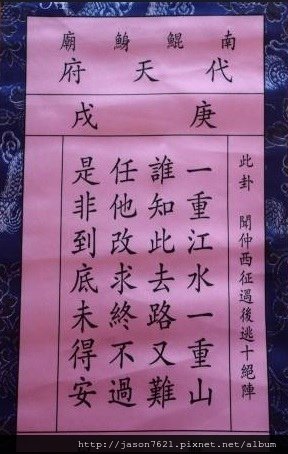 南鯤鯓廟
代天府
庚戌
此卦 聞仲西征過後逃十絕陣
一重江水一重山
誰知此去路又難
任他改求終不過
是非到底未得安
http://jason7621.pixnet.net/album